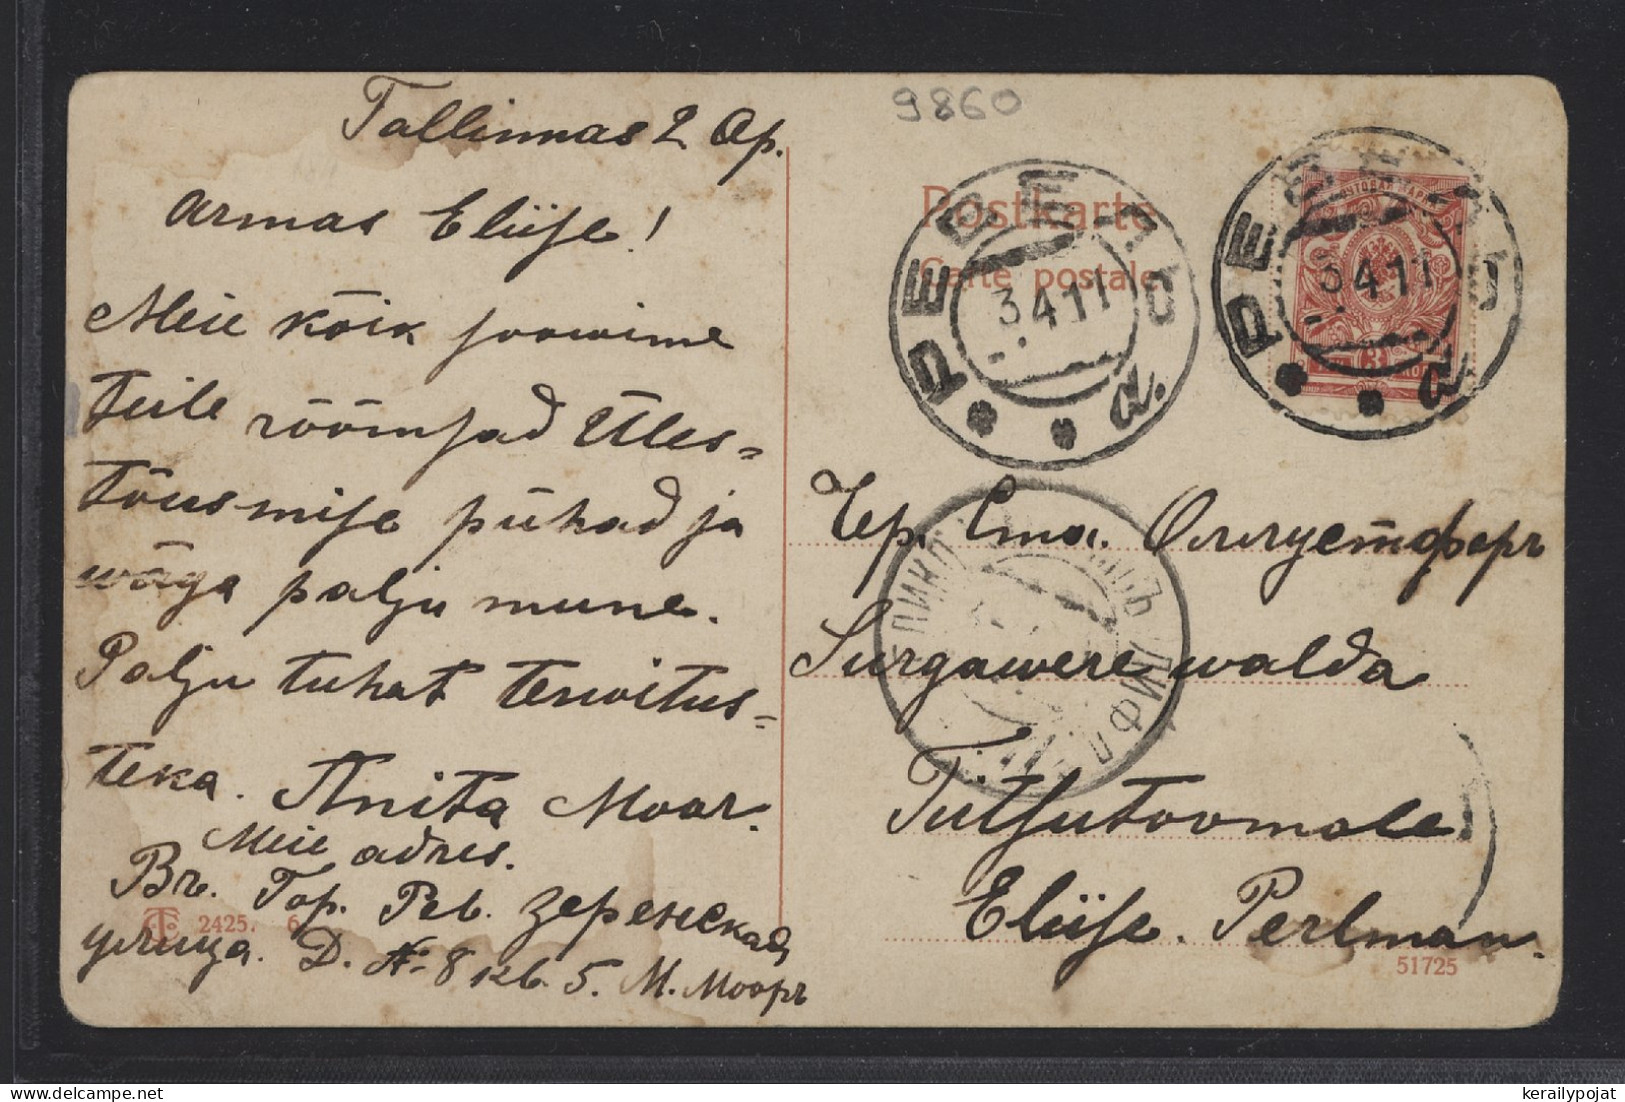 9860
Tallinnas 2 Ap.
Armas Eliise!
Meie kõik soowime
teile rõõmsad Üles=
tõusmise pühad ja
wäga palju mune.
Palju tuhat terwitus=
teka. Anita Moar.
Meie adres.
Въ. Гор. Рев. зеренская
улица. Д. № 8 кв. 5. М. Мооръ
2425. 6
Postkarte
Carte postale
РЕВЕЛЬ
3 4 11
а.
РЕВЕЛЬ
3 4 11
а.
ПОЧТОВАЯ МАРКА
3
КОП
Чер. Ста. Оллустферъ
Surgawere walda
Tütsutoomale
Eliise. Perlman.
ЛИФЛ
51725
kerailypojat